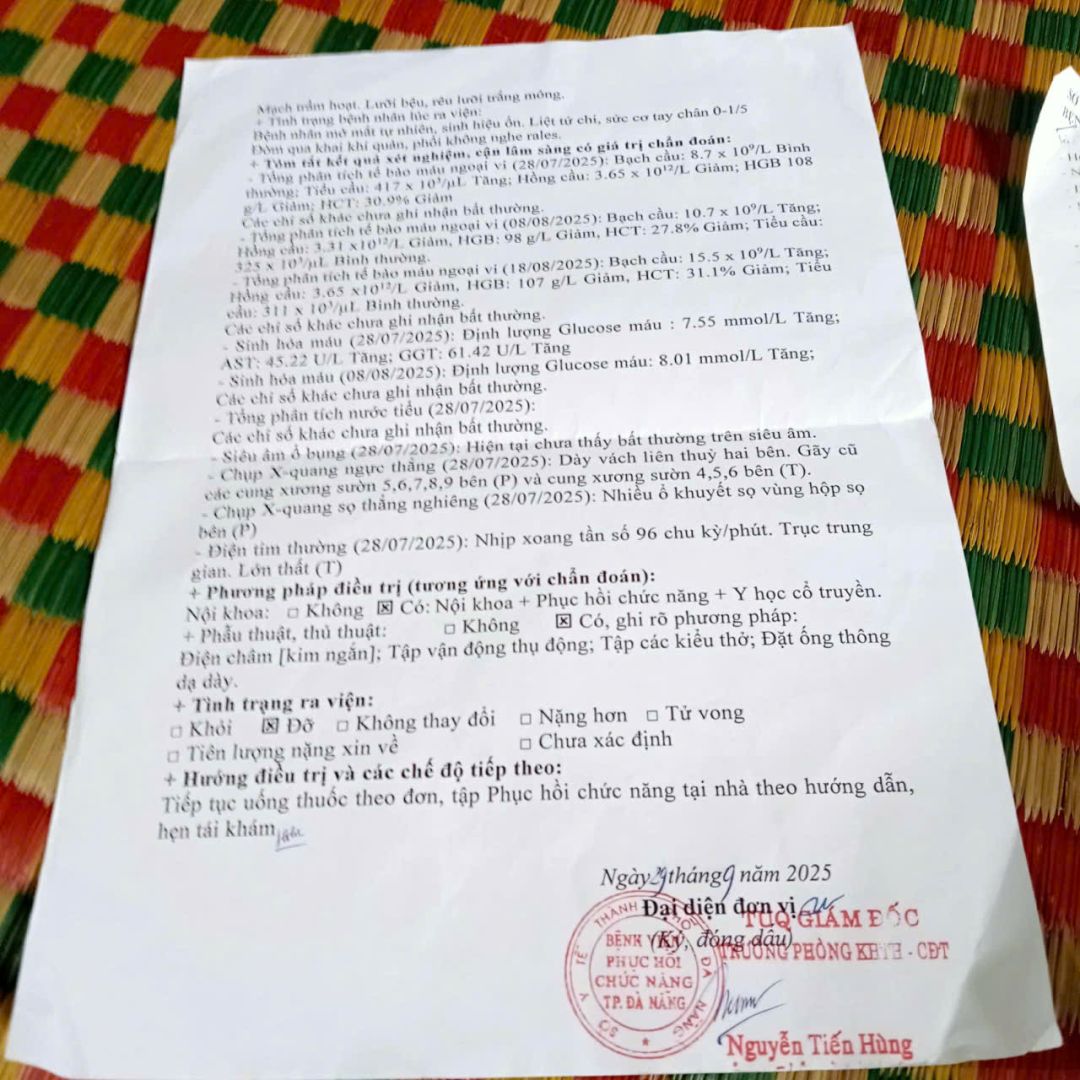 Mạch trầm hoạt. Lưỡi bệu, rêu lưỡi trắng mỏng.
+ Tình trạng bệnh nhân lúc ra viện:
Bệnh nhân mở mắt tự nhiên, sinh hiệu ổn. Liệt tứ chi, sức cơ tay chân 0-1/5
Đờm qua khai khí quản, phổi không nghe rales.
+ Tóm tắt kết quả xét nghiệm, cận lâm sàng có giá trị chẩn đoán:
- Tổng phân tích tế bào máu ngoại vi (28/07/2025): Bạch cầu: 8.7 x 10⁹/L Bình
thường; Tiểu cầu: 417 x 10³/µL Tăng; Hồng cầu: 3.65 x 10¹²/L Giảm; HGB 108
g/L Giảm; HCT: 30.9% Giảm
Các chỉ số khác chưa ghi nhận bất thường.
- Tổng phân tích tế bào máu ngoại vi (08/08/2025): Bạch cầu: 10.7 x 10⁹/L Tăng;
Hồng cầu: 3.31 x10¹²/L Giảm, HGB: 98 g/L Giảm, HCT: 27.8% Giảm; Tiểu cầu:
325 x 10³/µL Bình thường.
- Tổng phân tích tế bào máu ngoại vi (18/08/2025): Bạch cầu: 15.5 x 10⁹/L Tăng;
Hồng cầu: 3,65 x10¹²/L Giảm, HGB: 107 g/L Giảm, HCT: 31.1% Giảm; Tiểu
cầu: 311 x 10³/µL Bình thường.
Các chỉ số khác chưa ghi nhận bất thường.
- Sinh hóa máu (28/07/2025): Định lượng Glucose máu : 7.55 mmol/L Tăng;
AST: 45.22 U/L Tăng; GGT: 61.42 U/L Tăng
- Sinh hóa máu (08/08/2025): Định lượng Glucose máu: 8.01 mmol/L Tăng;
Các chỉ số khác chưa ghi nhận bất thường.
- Tổng phân tích nước tiểu (28/07/2025):
Các chỉ số khác chưa ghi nhận bất thường.
- Siêu âm ổ bụng (28/07/2025): Hiện tại chưa thấy bất thường trên siêu âm.
- Chụp X-quang ngực thẳng (28/07/2025): Dày vách liên thuỳ hai bên. Gãy cũ
các cung xương sườn 5,6,7,8,9 bên (P) và cung xương sườn 4,5,6 bên (T).
- Chụp X-quang sọ thẳng nghiêng (28/07/2025): Nhiều ổ khuyết sọ vùng hộp sọ
bên (P)
- Điện tim thường (28/07/2025): Nhịp xoang tần số 96 chu kỳ/phút. Trục trung
gian. Lớn thất (T)
+ Phương pháp điều trị (tương ứng với chẩn đoán):
Nội khoa: □ Không ☒ Có: Nội khoa + Phục hồi chức năng + Y học cổ truyền.
+ Phẫu thuật, thủ thuật: □ Không ☒ Có, ghi rõ phương pháp:
Điện châm [kim ngắn]; Tập vận động thụ động; Tập các kiểu thở; Đặt ống thông
dạ dày.
+ Tình trạng ra viện:
□ Khỏi ☒ Đỡ □ Không thay đổi □ Nặng hơn □ Tử vong
□ Tiên lượng nặng xin về □ Chưa xác định
+ Hướng điều trị và các chế độ tiếp theo:
Tiếp tục uống thuốc theo đơn, tập Phục hồi chức năng tại nhà theo hướng dẫn,
hẹn tái khám
Ngày 29 tháng 9 năm 2025
Đại diện đơn vị
(Ký, đóng dấu)
TUQ GIÁM ĐỐC
TRƯỞNG PHÒNG KHTH - CĐT
SỞ Y TẾ THÀNH PHỐ ĐÀ NẴNG
BỆNH VIỆN
PHỤC HỒI
CHỨC NĂNG
TP. ĐÀ NẴNG
Nguyễn Tiến Hùng